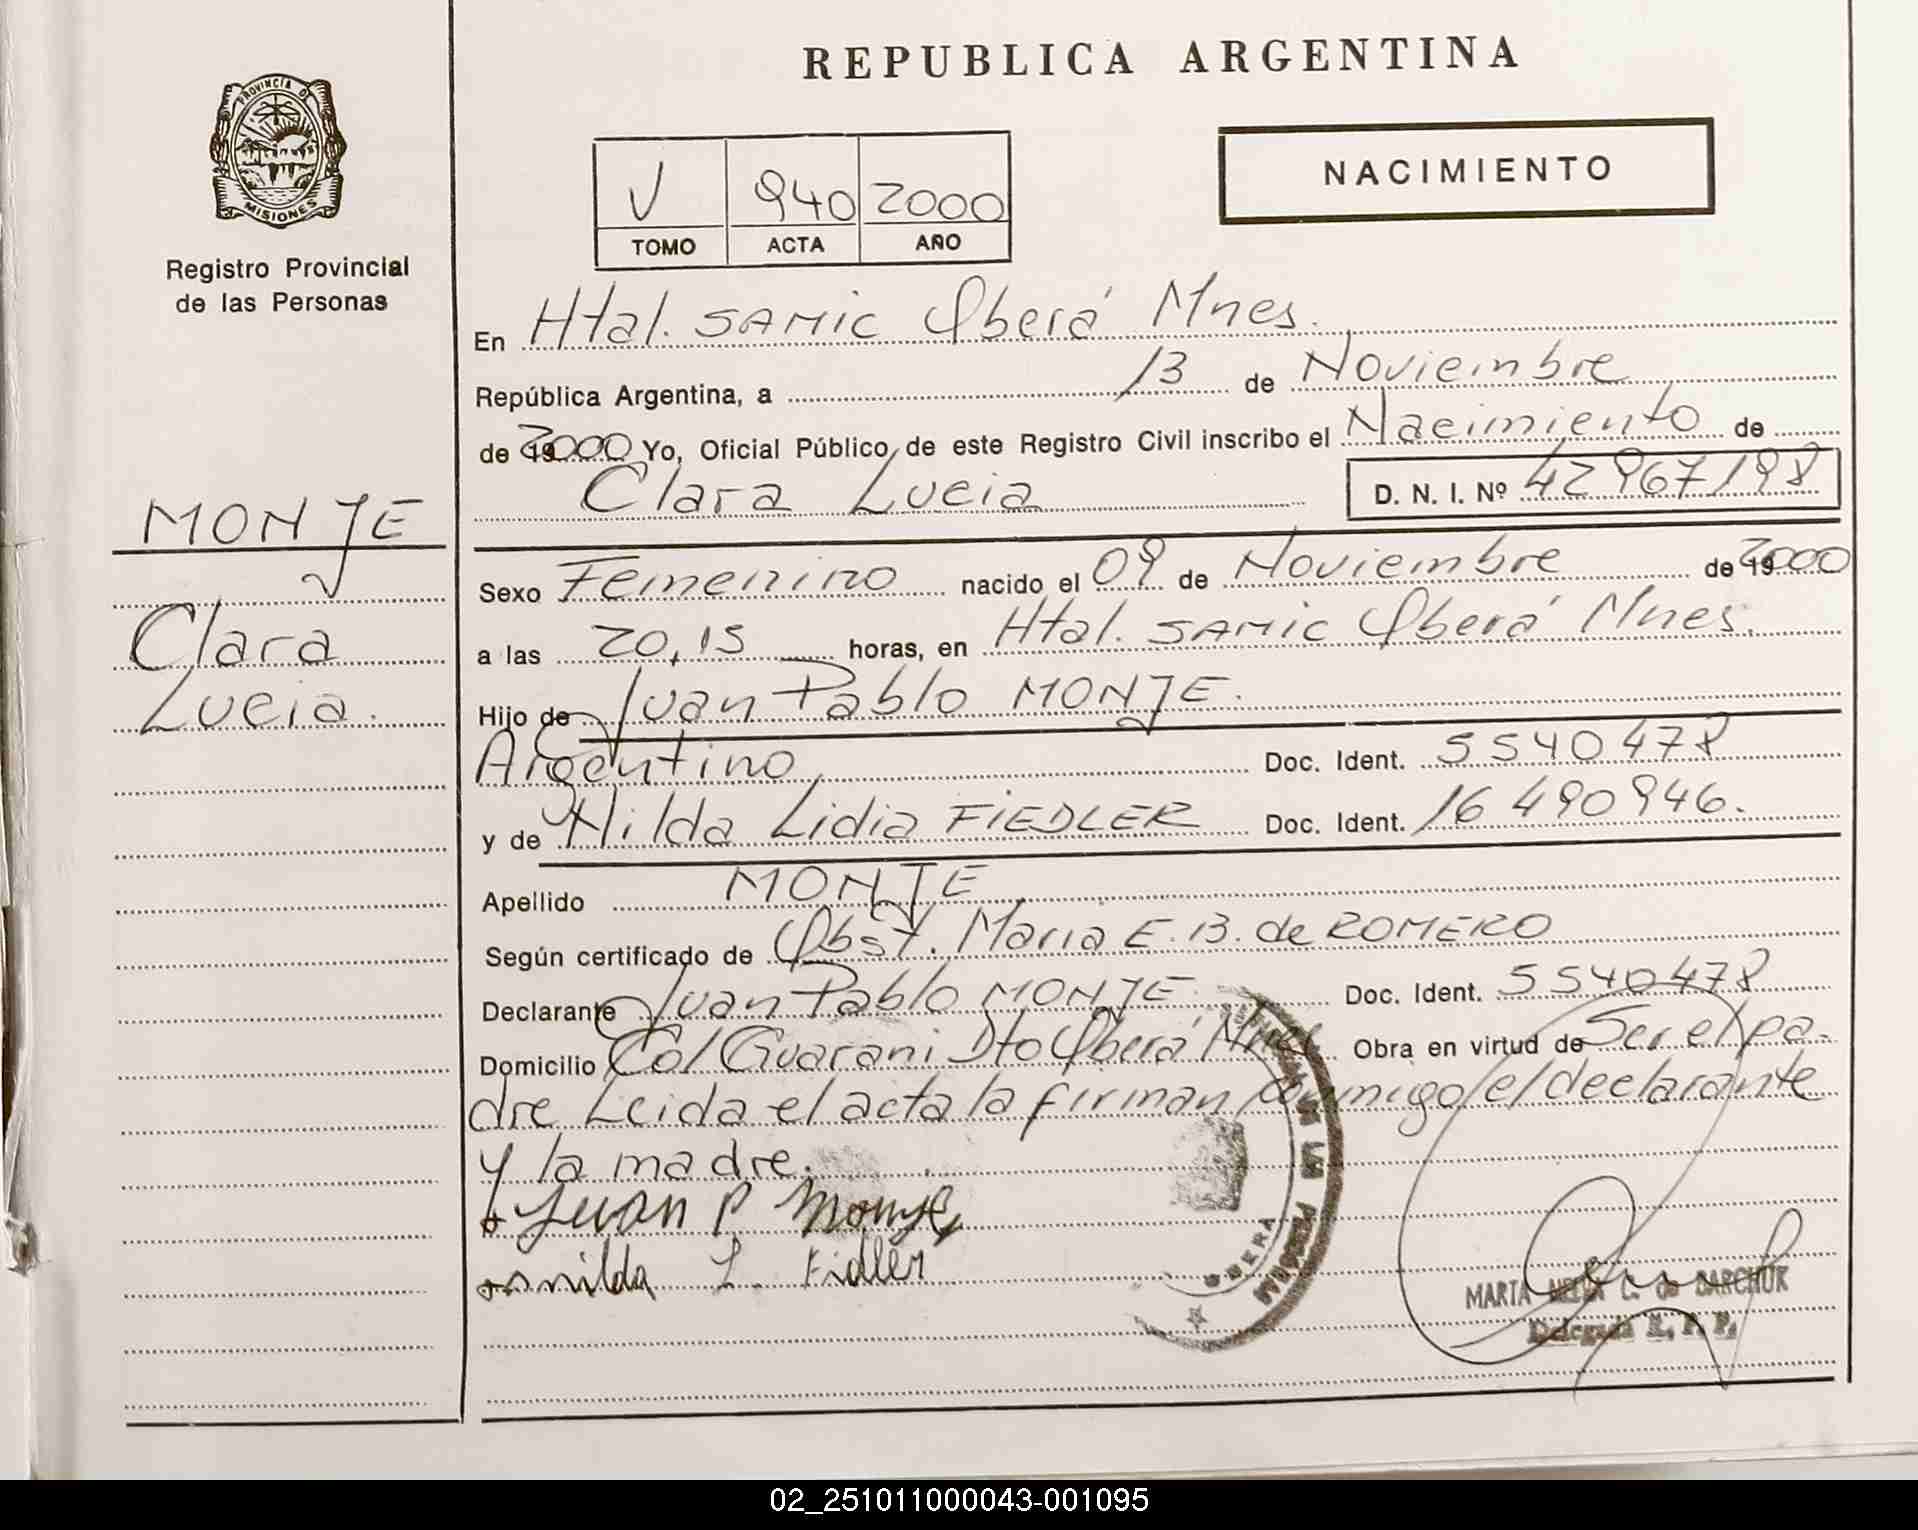 REPUBLICA ARGENTINA
PROVINCIA DE
MISIONES
Registro Provincial
de las Personas
V 940 2000
TOMO ACTA AÑO
NACIMIENTO
En Htal. SAMIC Oberá Mnes.
República Argentina, a 13 de Noviembre
de 2000 Yo, Oficial Público de este Registro Civil inscribo el Nacimiento de
Clara Lucia D. N. I. Nº 42967198
MONJE
Clara
Lucia.
Sexo Femenino nacido el 09 de Noviembre de 2000
a las 20,15 horas, en Htal. SAMIC Oberá Mnes.
Hijo de Juan Pablo MONJE.
Argentino Doc. Ident. 5540478
y de Hilda Lidia FIEDLER Doc. Ident. 16 490946.
Apellido MONJE
Según certificado de Obst. Maria E. B. de ROMERO
Declarante Juan Pablo MONJE Doc. Ident. 5540478
Domicilio Col Guarani Dto Oberá Mnes Obra en virtud de Ser el pa-
dre Leida el acta la firman conmigo el declarante
y la madre.
Juan P Monje
L. Fidler
DE LAS PERSONAS
OBERA
MARIA C. de SARCHUK
Delegada R. P. P.
02_251011000043-001095